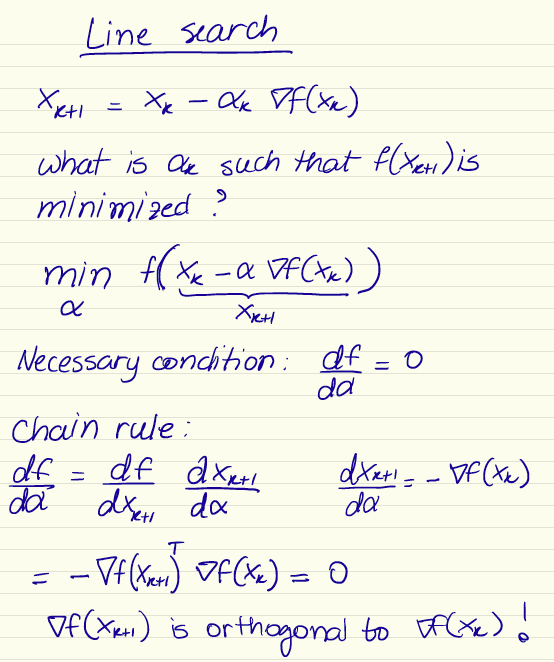 Line search
x_{k+1} = x_k − α_k ∇f(x_k)
what is α_k such that f(x_{k+1}) is
minimized ?
min_α f(x_k − α ∇f(x_k))
x_{k+1}
Necessary condition: df/dα = 0
Chain rule:
df/dα = df/dx_{k+1} dx_{k+1}/dα    dx_{k+1}/dα = − ∇f(x_k)
= − ∇f(x_{k+1})^T ∇f(x_k) = 0
∇f(x_{k+1}) is orthogonal to ∇f(x_k) !